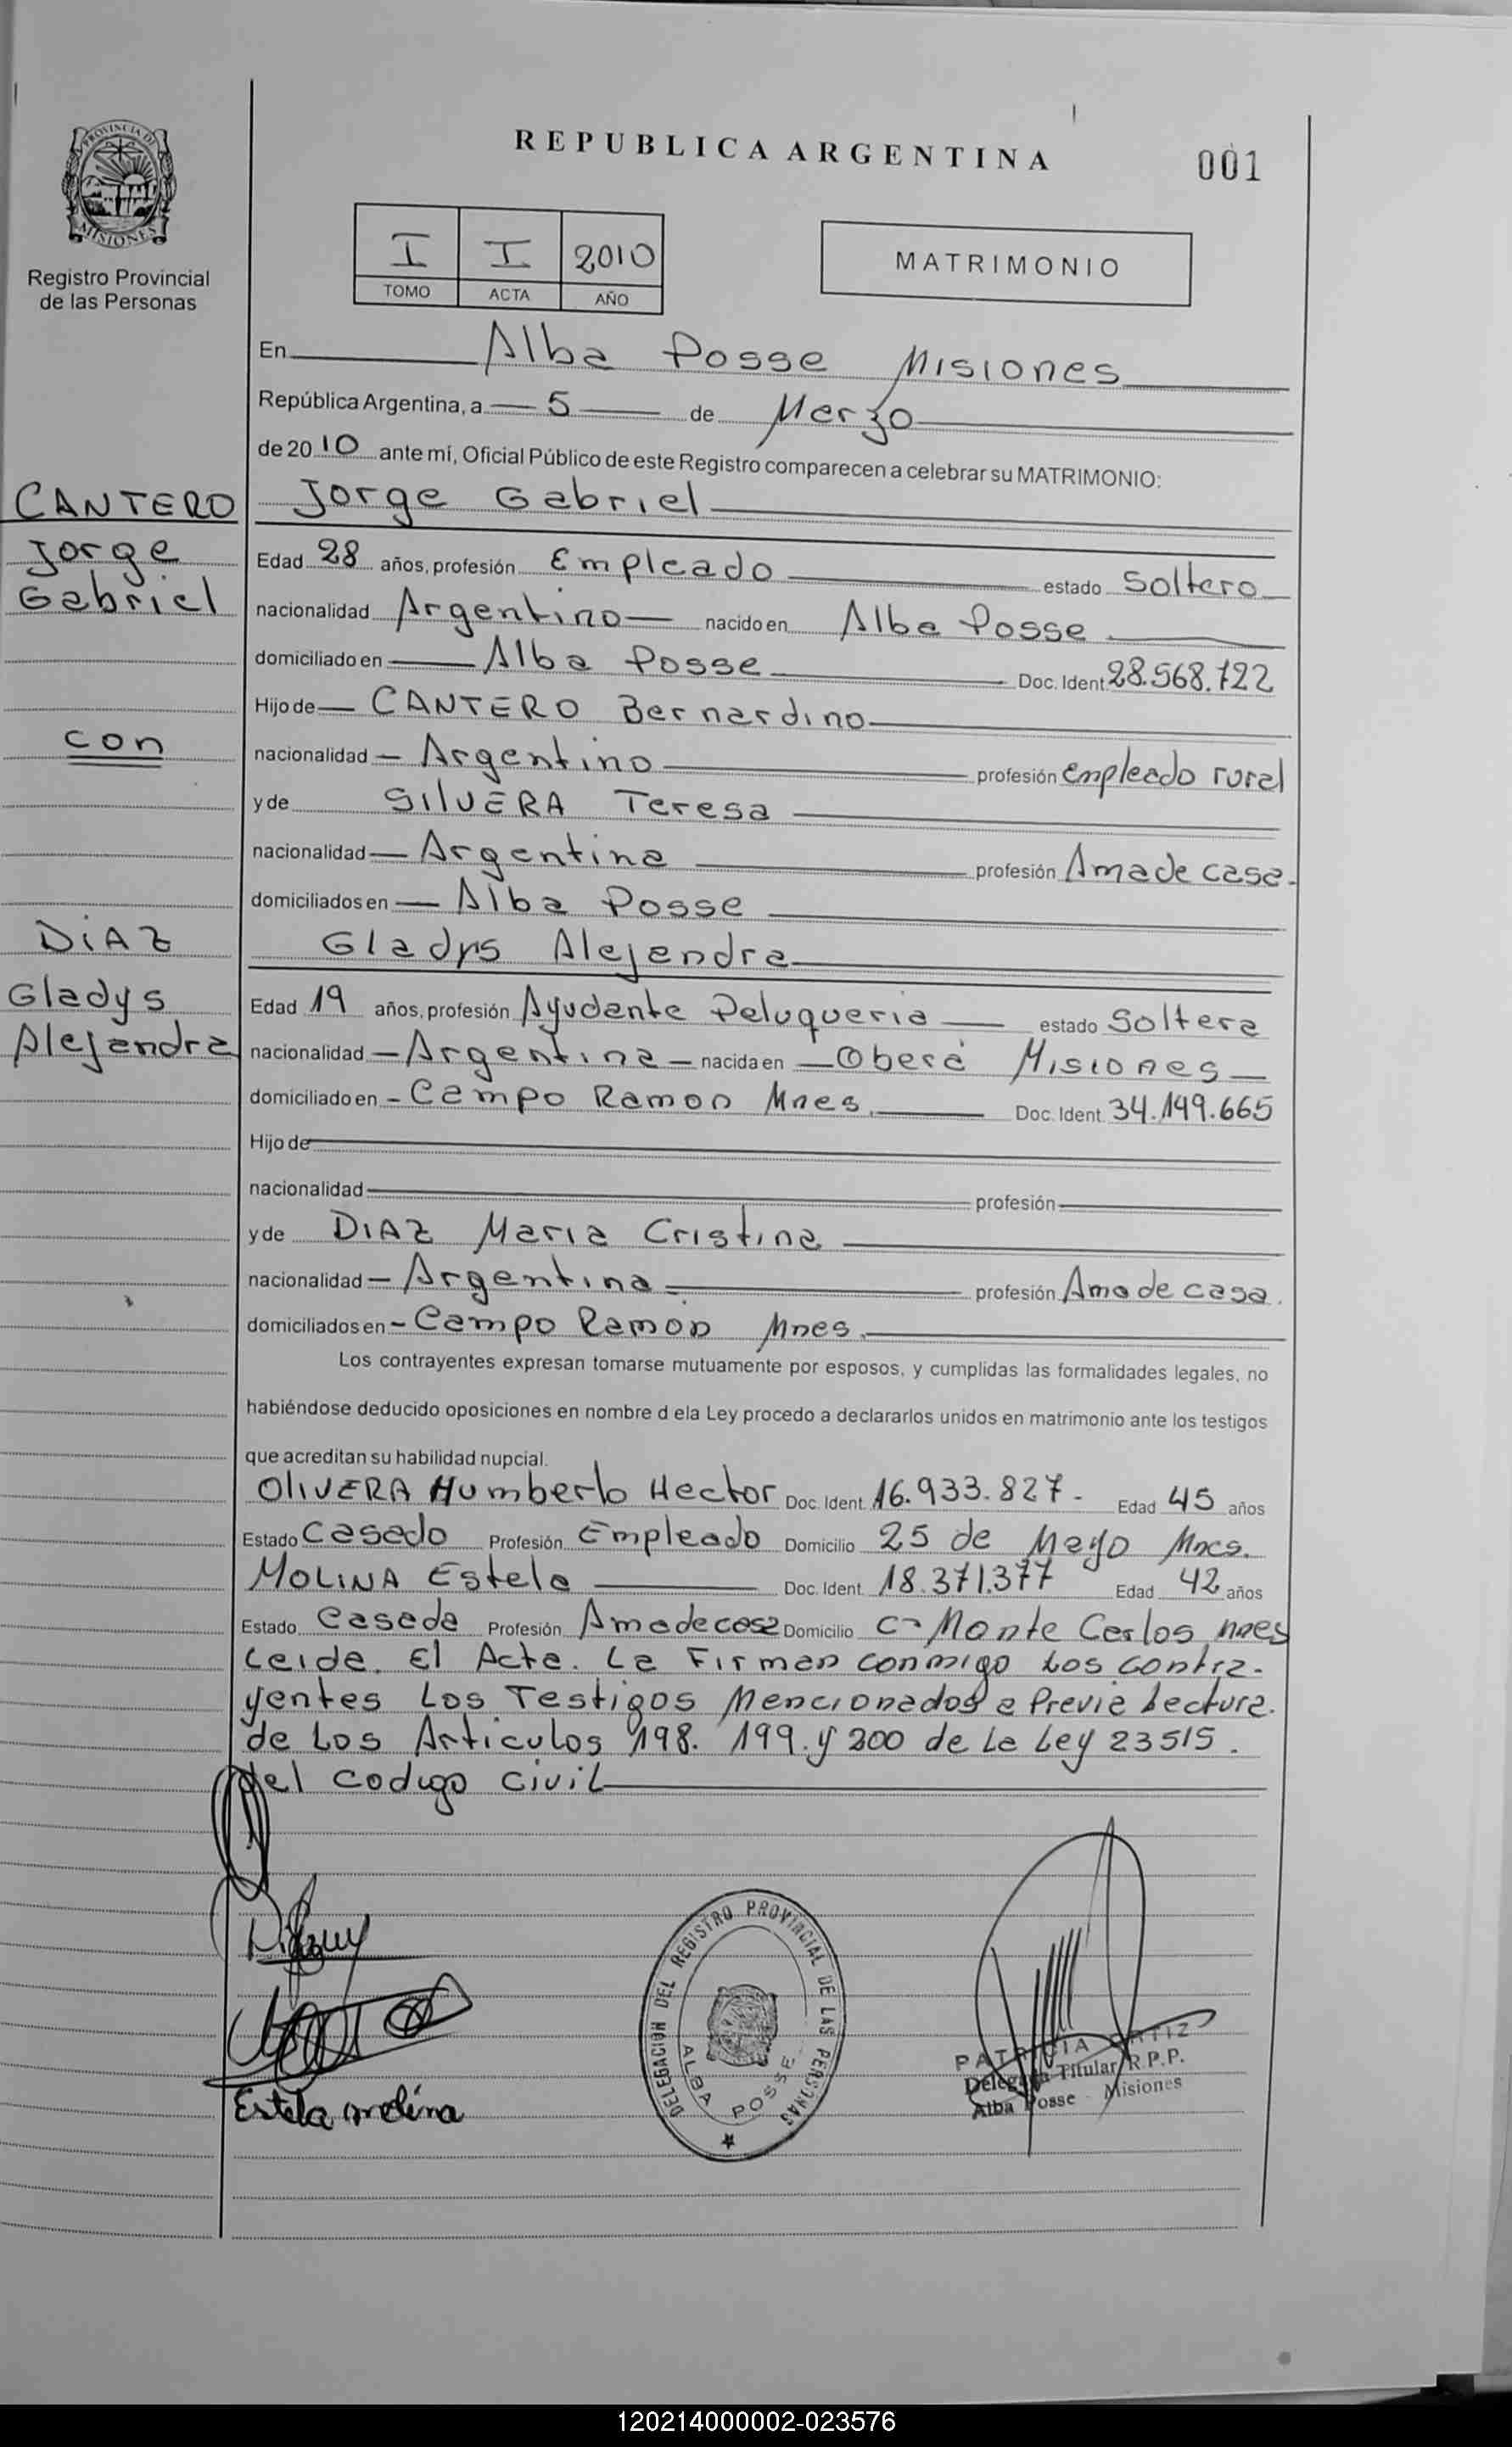 PROVINCIA DE
MISIONES
Registro Provincial
de las Personas
REPUBLICA ARGENTINA
001
I I 2010
TOMO ACTA AÑO
MATRIMONIO
En Alba Posse Misiones
República Argentina, a 5 de Marzo
de 2010 ante mí, Oficial Público de este Registro comparecen a celebrar su MATRIMONIO:
CANTERO Jorge Gabriel
Jorge
Gabriel
Edad 28 años, profesión Empleado estado Soltero
nacionalidad Argentino nacido en Alba Posse
domiciliado en Alba Posse Doc. Ident. 28.568.722
Hijo de CANTERO Bernardino
con
nacionalidad Argentino profesión empleado rural
y de SILVERA Teresa
nacionalidad Argentina profesión Ama de casa
domiciliados en Alba Posse
DIAZ Gladys Alejandra
Gladys
Alejandra
Edad 19 años, profesión Ayudante Peluqueria estado Soltera
nacionalidad Argentina nacida en Oberá Misiones
domiciliado en Campo Ramon Mnes. Doc. Ident. 34.149.665
Hijo de
nacionalidad profesión
y de DIAZ Maria Cristina
nacionalidad Argentina profesión Ama de casa.
domiciliados en Campo Ramón Mnes.
Los contrayentes expresan tomarse mutuamente por esposos, y cumplidas las formalidades legales, no
habiéndose deducido oposiciones en nombre d ela Ley procedo a declararlos unidos en matrimonio ante los testigos
que acreditan su habilidad nupcial.
OLIVERA Humberto Hector Doc. Ident. 16.933.827.- Edad 45 años
Estado Casado Profesión Empleado Domicilio 25 de Mayo Mnes.
MOLINA Estela Doc. Ident. 18.371.377 Edad 42 años
Estado Casada Profesión Ama de casa Domicilio Monte Carlos mnes
Leida. El Acta. La Firman conmigo Los contra-
yentes Los Testigos Mencionados a Previa Lectura.
de Los Articulos 198. 199. y 200 de La Ley 23515.
del codigo civil
Estela molina
DELEGACION DEL REGISTRO PROVINCIAL DE LAS PERSONAS
ALBA POSSE
PATRICIA ORTIZ
Delegada Titular R.P.P.
Alba Posse - Misiones
120214000002-023576